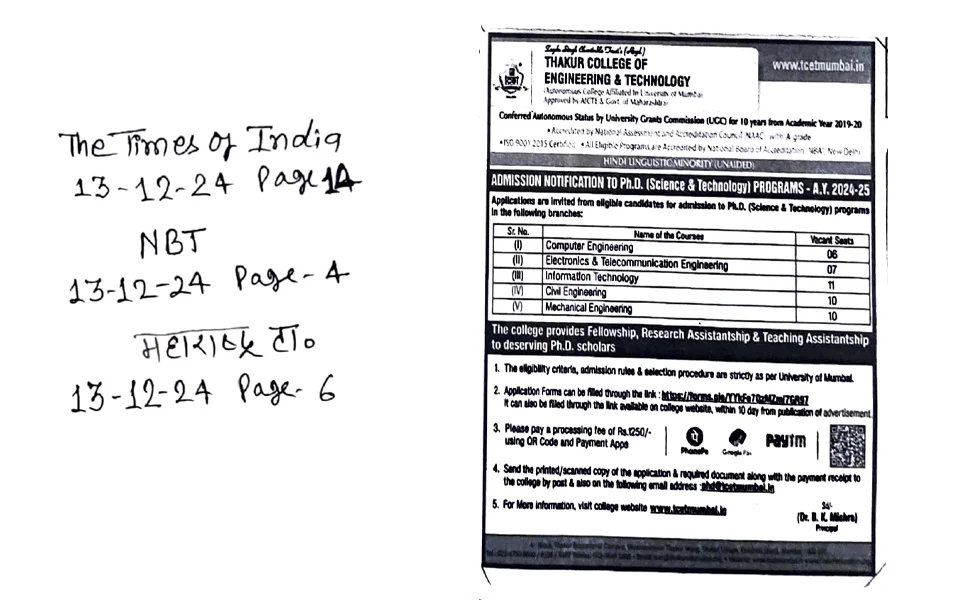 The Times of India
13-12-24 Page 14
NBT
13-12-24 Page-4
महाराष्ट्र टा०
13-12-24 Page-6
THAKUR COLLEGE OF
ENGINEERING & TECHNOLOGY
(Autonomous College Affiliated to University of Mumbai
Approved by AICTE & Govt. of Maharashtra)
www.tcetmumbai.in
Conferred Autonomous Status by University Grants Commission (UGC) for 10 years from Academic Year 2019-20
• Accredited by National Assessment and Accreditation Council 'NAAC' with 'A' grade
• ISO 9001:2015 Certified • All Eligible Programs are Accredited by National Board of Accreditation 'NBA', New Delhi
HINDI LINGUISTIC MINORITY (UNAIDED)
ADMISSION NOTIFICATION TO Ph.D. (Science & Technology) PROGRAMS - A.Y. 2024-25
Applications are invited from eligible candidates for admission to Ph.D. (Science & Technology) programs
in the following branches:
Sr. No. Name of the Courses Vacant Seats
(I) Computer Engineering 06
(II) Electronics & Telecommunication Engineering 07
(III) Information Technology 11
(IV) Civil Engineering 10
(V) Mechanical Engineering 10
The college provides Fellowship, Research Assistantship & Teaching Assistantship
to deserving Ph.D. scholars
1. The eligibility criteria, admission rules & selection procedure are strictly as per University of Mumbai.
2. Application Forms can be filled through the link :
It can also be filled through the link available on college website, within 10 day from publication of advertisement.
3. Please pay a processing fee of Rs.1250/-
using QR Code and Payment Apps
PhonePe Google Pay Paytm
4. Send the printed/scanned copy of the application & required document along with the payment receipt to
the college by post & also on the following email address : phd@tcetmumbai.in
5. For More information, visit college website www.tcetmumbai.in
Sd/-
(Dr. B. K. Mishra)
Principal